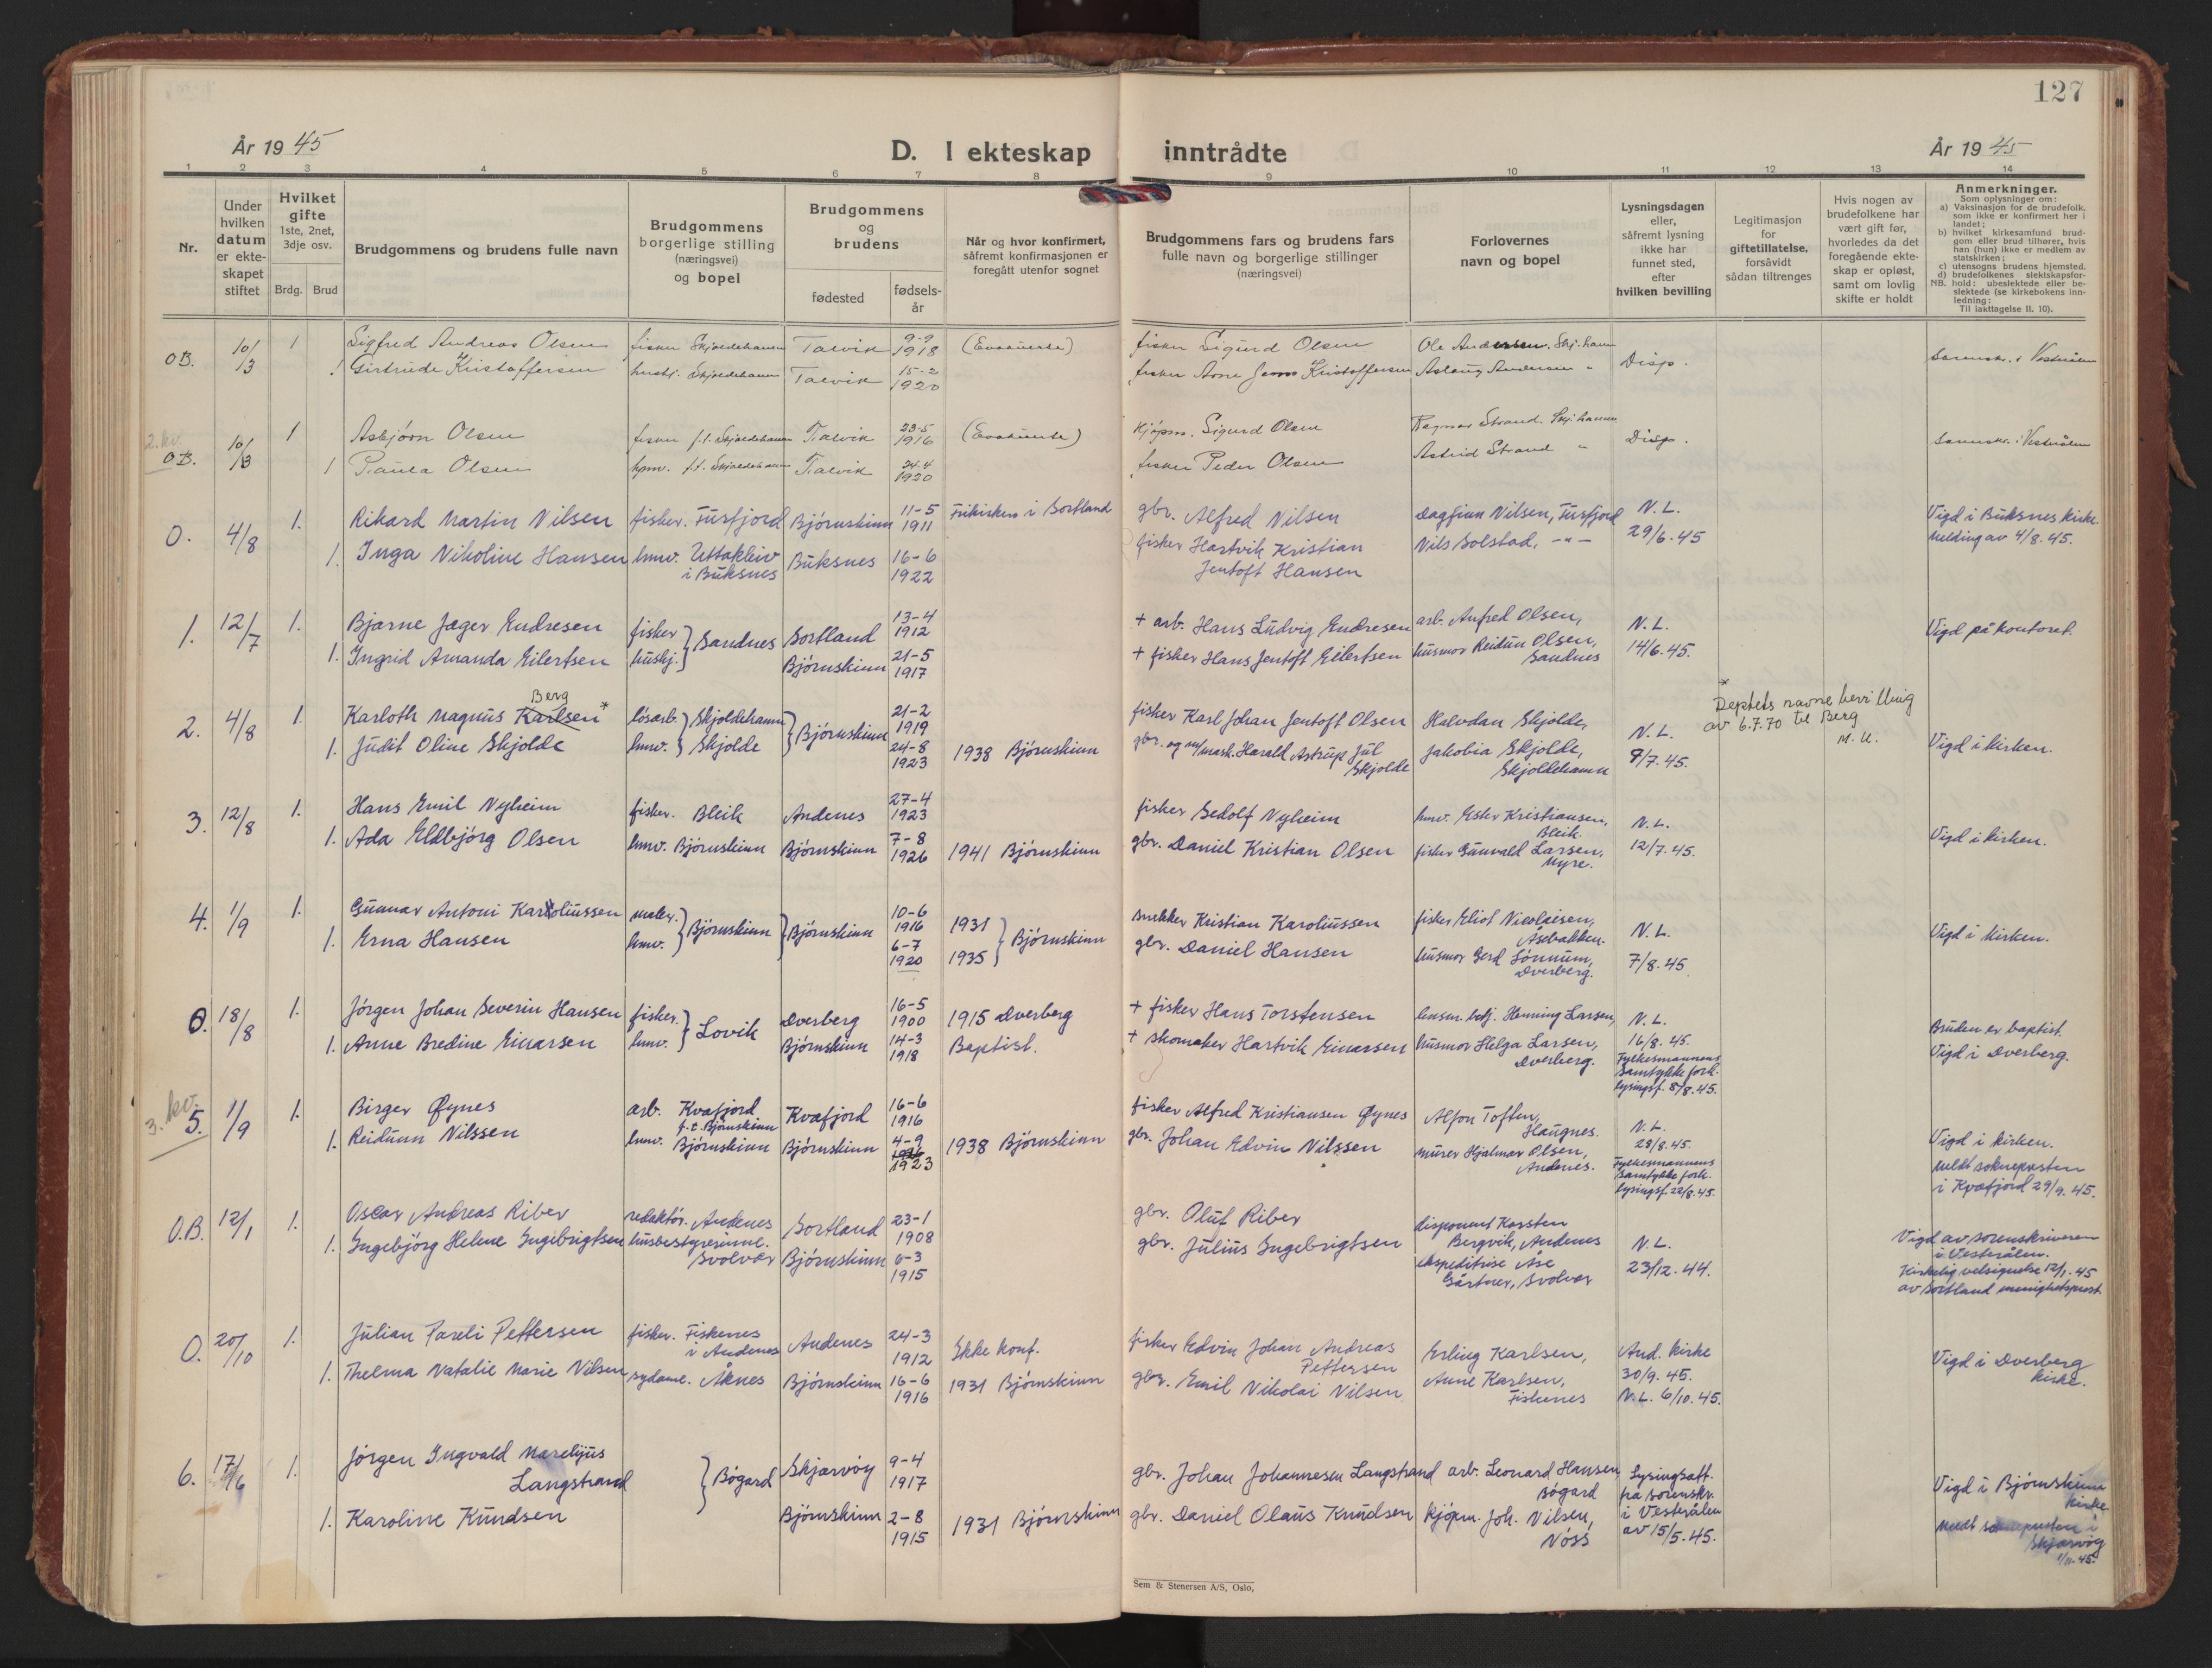 127
År 1945
D. I ekteskap inntrådte
År 1945
1 2 3 4 5 6 7 8 9 10 11 12 13 14
Nr.
Under hvilken datum er ekte-skapet stiftet
Hvilket gifte 1ste, 2net, 3dje osv.
Brdg. Brud
Brudgommens og brudens fulle navn
Brudgommens borgerlige stilling (næringsvei) og bopel
Brudgommens og brudens
fødested
fødsels-år
Når og hvor konfirmert, såfremt konfirmasjonen er foregått utenfor sognet
Brudgommens fars og brudens fars fulle navn og borgerlige stillinger (næringsvei)
Forlovernes navn og bopel
Lysningsdagen eller, såfremt lysning ikke har funnet sted, efter hvilken bevilling
Legitimasjon for giftetillatelse, forsåvidt sådan tiltrenges
Hvis nogen av brudefolkene har vært gift før, hvorledes da det foregående ekte-skap er opløst, samt om lovlig skifte er holdt
Anmerkninger.
Som oplysninger om:
a) Vaksinasjon for de brudefolk. som ikke er konfirmert her i landet;
b) hvilket kirkesamfund brud-gom eller brud tilhører, hvis han (hun) ikke er medlem av statskirken;
c) utensogns brudens hjemsted.
d) brudefolkenes slektskapsfor-hold: ubeslektede eller be-slektede (se kirkebokens inn-ledning:
NB.
Til iakttagelse II. 10).
O.B. 10/3 1 Sigfred Andreas Olsen fisker Skjoldehamn Talvik 9-9 1918 (Evakuerte) fisker Sigurd Olsen Ole Andersen. Skj.hamn Disp. Sorenskr. i Vesterålen
1 Girtrude Kristoffersen hushj. Skjoldehamn Talvik 15-2 1920 fisker Arne Jens Kristoffersen Aslaug Andersen "
2. kv.
O.B. 10/3 1 Asbjørn Olsen fisker f.t. Skjoldehamn Talvik 23-5 1916 (Evakuerte) Kjøpm. Sigurd Olsen Ragnar Strand. Skj.hamn Disp. Sorenskr. i Vesterålen
1 Paula Olsen hmv. f.t. Skjoldehamn Talvik 24-4 1920 fisker Peder Olsen Astrid Strand "
O. 4/8 1. Rikard Martin Nilsen fisker. Tusfjord Bjørnskinn 11-5 1911 Frikirken i Sortland gbr. Alfred Nilsen Dagfinn Nilsen, Tusfjord N.L. 29/6.45 Vigd i Buksnes kirke. Melding av 4/8.45.
1. Inga Nikoline Hansen hmv. Uttakleiv i Buksnes Buksnes 16-6 1922 fisker Hartvik Kristian Jentoft Hansen Nils Solstad, -"-
1. 12/7 1. Bjarne Jæger Endresen fisker Sandnes Sortland 13-4 1912 + arb. Hans Ludvig Endresen arb. Anfred Olsen, N.L. 14/6.45. Vigd på kontoret.
1. Ingrid Amanda Eilertsen hushj. Bjørnskinn 21-5 1917 + fisker Hans Jentoft Eilertsen husmor Reidun Olsen, Sandnes
2. 4/8 1. Karloth Magnus Karlsen* Berg løsarb. Skjoldehamn Bjørnskinn 21-2 1919 fisker Karl Johan Jentoft Olsen Halvdan Skjolde, N.L. 9/7.45. Vigd i kirken.
* Deptets navnebevilling av 6.7.70 til Berg M.U.
1. Judit Oline Skjolde hmv. Skjolde 24-8 1923 1938 Bjørnskinn gbr. og m/mask. Harald Astrup Jul Skjolde Jakobia Skjolde, Skjoldehamn
3. 12/8 1. Hans Emil Nyheim fisker. Bleik Andenes 27-4 1923 fisker Sedolf Nyheim hmv. Ester Kristiansen, Bleik. N.L. 12/7.45. Vigd i kirken.
1. Ada Eldbjørg Olsen hmv. Bjørnskinn Bjørnskinn 7-8 1926 1941 Bjørnskinn gbr. Daniel Kristian Olsen fisker Gunvald Larsen, Myre.
4. 1/9 1. Gunnar Antoni Karoliussen maler. Bjørnskinn Bjørnskinn 10-6 1916 1931 Bjørnskinn snekker Kristian Karoliussen fisker Eliot Nicolaisen, Åsbakken. N.L. 7/8.45. Vigd i kirken.
1. Erna Hansen hmv. 6-7 1920 1935 gbr. Daniel Hansen husmor Gerd Lönnum, Dverberg.
O. 18/8 1. Jørgen Johan Severin Hansen fisker. Lovik Dverberg 16-5 1900 1915 Dverberg + fisker Hans Torstensen lensm. betj. Henning Larsen, N.L. 16/8.45. Fylkesmannens samtykke fork. lysingsf. 8/8.45. Bruden er baptist. Vigd i Dverberg.
1. Anne Bredine Einarsen hmv. Bjørnskinn 14-3 1918 Baptist. + skomaker Hartvik Einarsen husmor Helga Larsen, Dverberg.
3. kv.
5. 1/9 1. Birger Øynes arb. Kvæfjord f.t. Bjørnskinn Kvæfjord 16-6 1916 fisker Alfred Kristiansen Øynes Alfon Toften, Haugnes. N.L. 28/8.45. Fylkesmannens samtykke fork. lysingsf. 22/8.45. Vigd i kirken. Meldt sokneprsten i Kvæfjord 29/9.45.
1. Reidunn Nilssen hmv. Bjørnskinn Bjørnskinn 4-9 1923 1938 Bjørnskinn gbr. Johan Edvin Nilssen murer Hjalmar Olsen, Andenes.
O.B. 12/1 1. Oscar Andreas Riber redaktør. Andenes Sortland 23-1 1908 gbr. Oluf Riber disponent Karsten Bergvik, Andenes N.L. 23/12.44. Vigd av sorenskriveren i Vesterålen. Kirkelig velsignelse 12/1.45 av Sortland menighetsprest.
1. Ingebjørg Helene Ingebrigtsen husbestyrerinne. Svolvær Bjørnskinn 6-3 1915 gbr. Julius Ingebrigtsen ekspeditrise Åse Gårtner, Svolvær
O. 20/10 1. Julian Pareli Pettersen fisker. Fiskenes i Andenes Andenes 24-3 1912 Ikke konf. fisker Edvin Johan Andreas Pettersen Erling Karlsen, And. kirke 30/9.45. N.L. 6/10.45. Vigd i Dverberg kirke.
1. Thelma Natalie Marie Nilsen sydame. Åknes Bjørnskinn 16-6 1916 1931 Bjørnskinn gbr. Emil Nikolai Nilsen Anne Karlsen, Fiskenes
6. 17/6 1. Jørgen Ingvald Marelijus Langstrand Bøgard Skjærvøy 9-4 1917 gbr. Johan Johannesen Langstrand arb. Leonard Hansen Bøgard Lysingsatt. fra sorenskr. i Vesterålen av 15/5.45. Vigd i Bjørnskinn kirke. Meldt sokneprsten i Skjærvøy 1/11.45.
1. Karoline Knudsen Bjørnskinn 2-8 1915 1931 Bjørnskinn gbr. Daniel Olaus Knudsen kjøpm. Joh. Nilsen, Nöss
Sem & Stenersen A/S, Oslo,